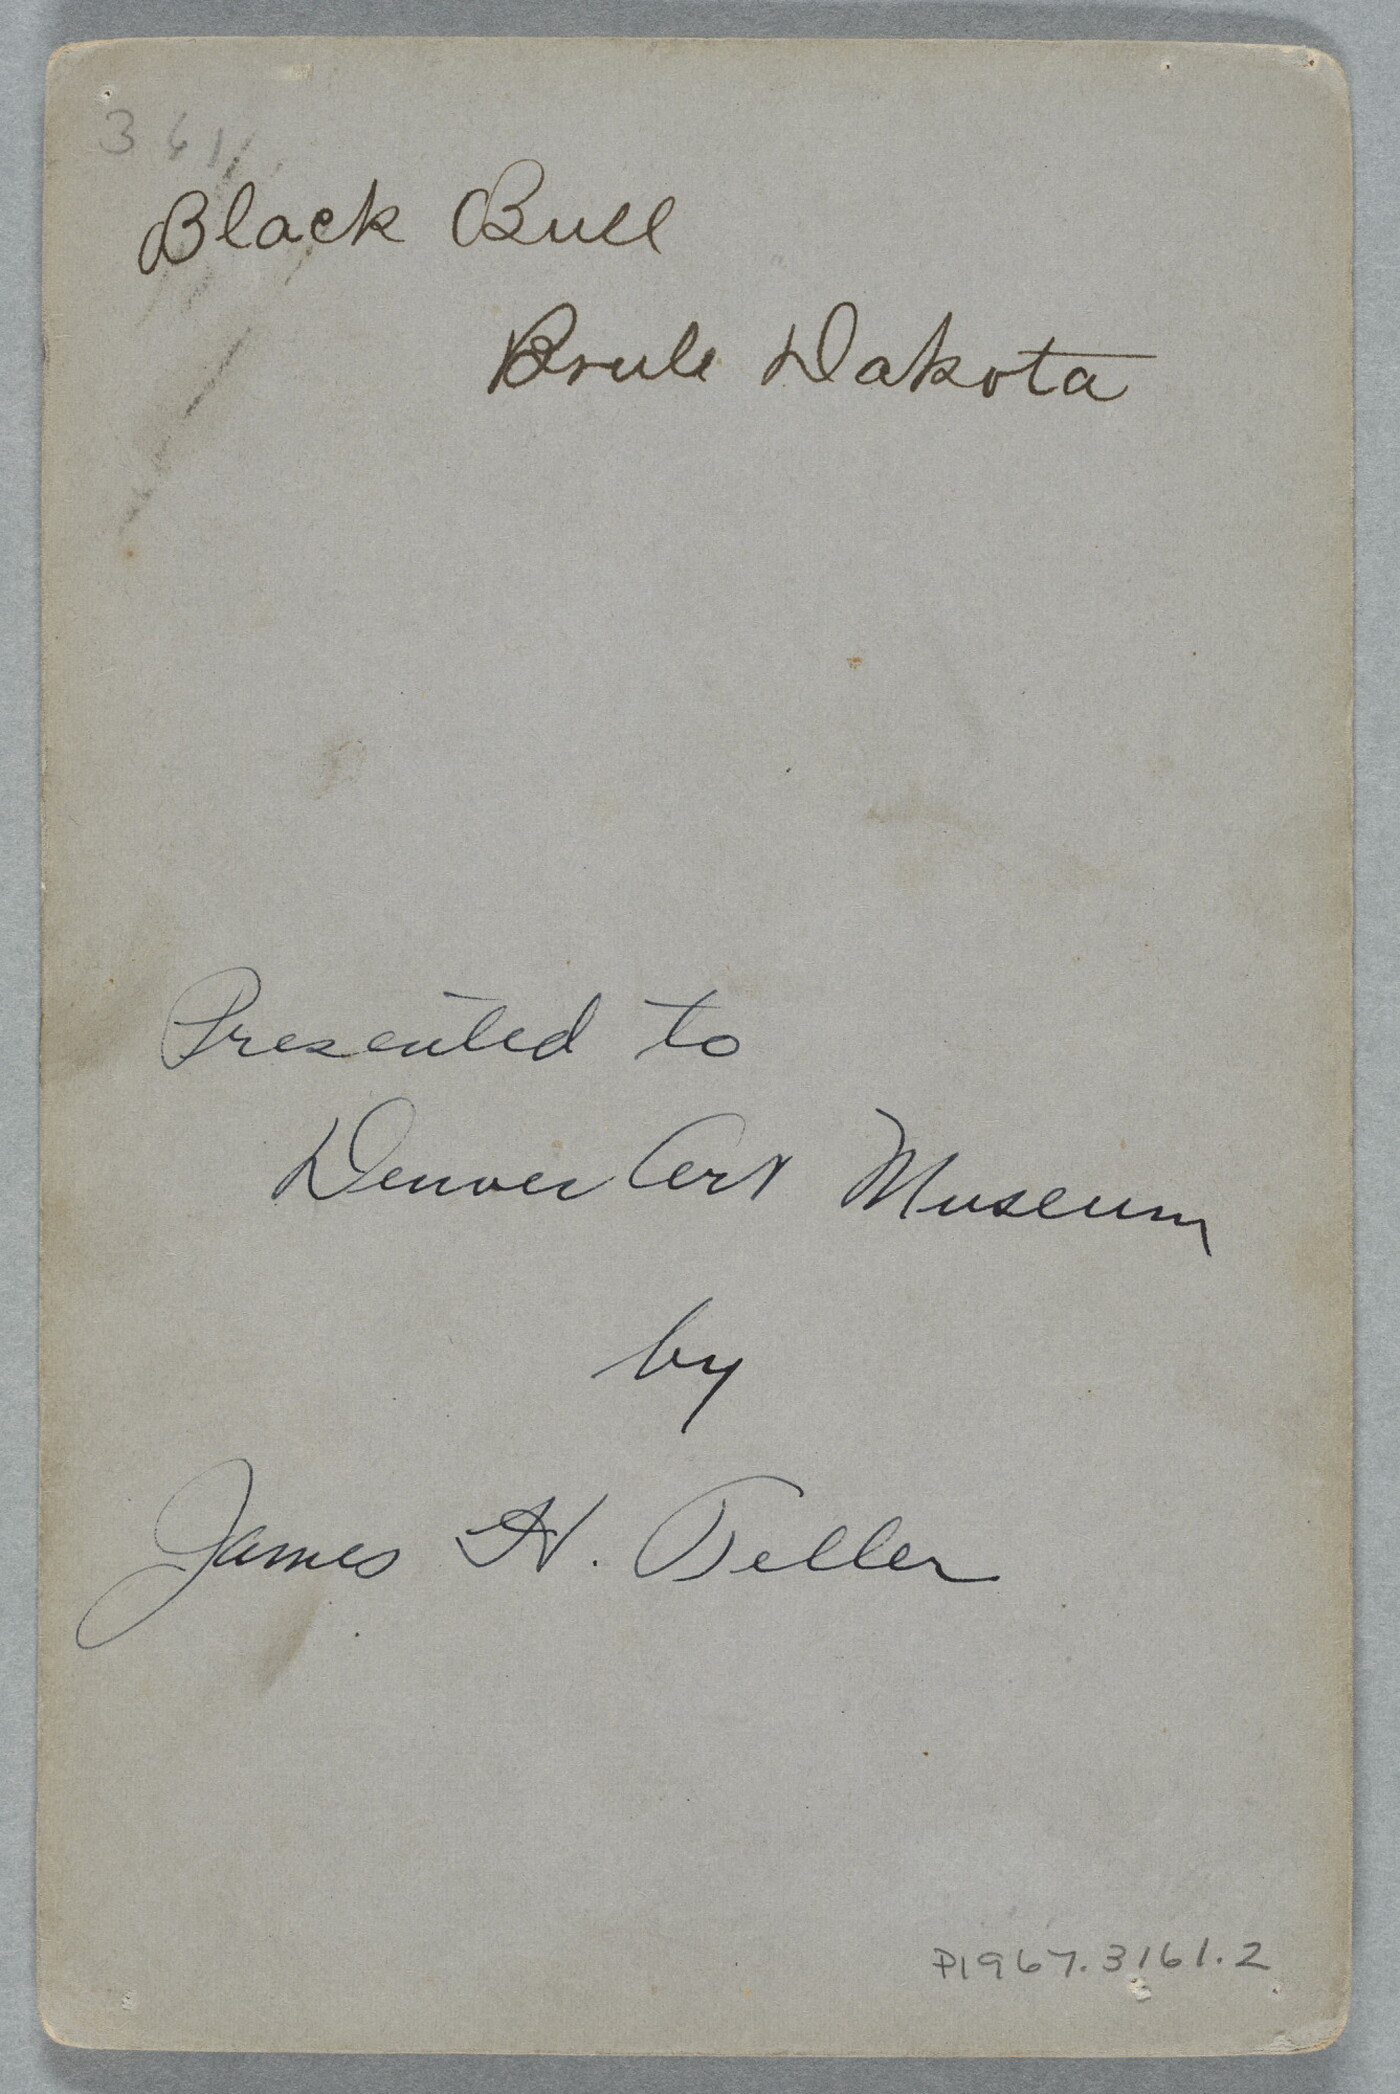 361
Black Bull
Brule Dakota
Presented to
Denver Art Museum
by
James H. Teller
P1967.3161.2